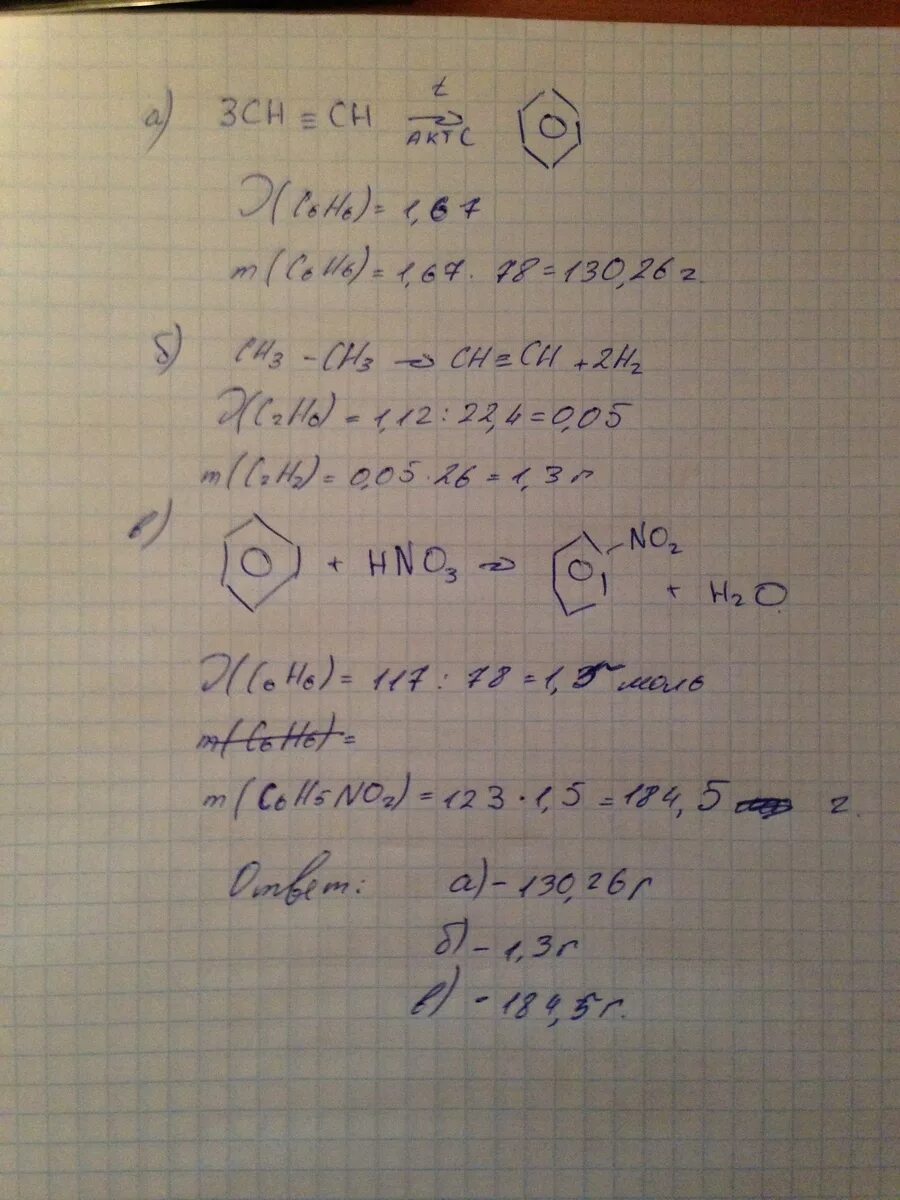 а) 3CH ≡ CH t АКТ С
ν(C6H6) = 1,67
m(C6H6) = 1,67 · 78 = 130,26 г.
б) CH3 – CH3 → CH≡CH + 2H2
ν(C2H6) = 1,12 : 22,4 = 0,05
m(C2H2) = 0,05 · 26 = 1,3 г
в) + HNO3 → NO2 + H2O
ν(C6H6) = 117 : 78 = 1,5 моль
m(C6H6) =
m(C6H5NO2) = 123 · 1,5 = 184,5 г.
Ответ: а) – 130,26 г
б) – 1,3 г
в) – 184,5 г.